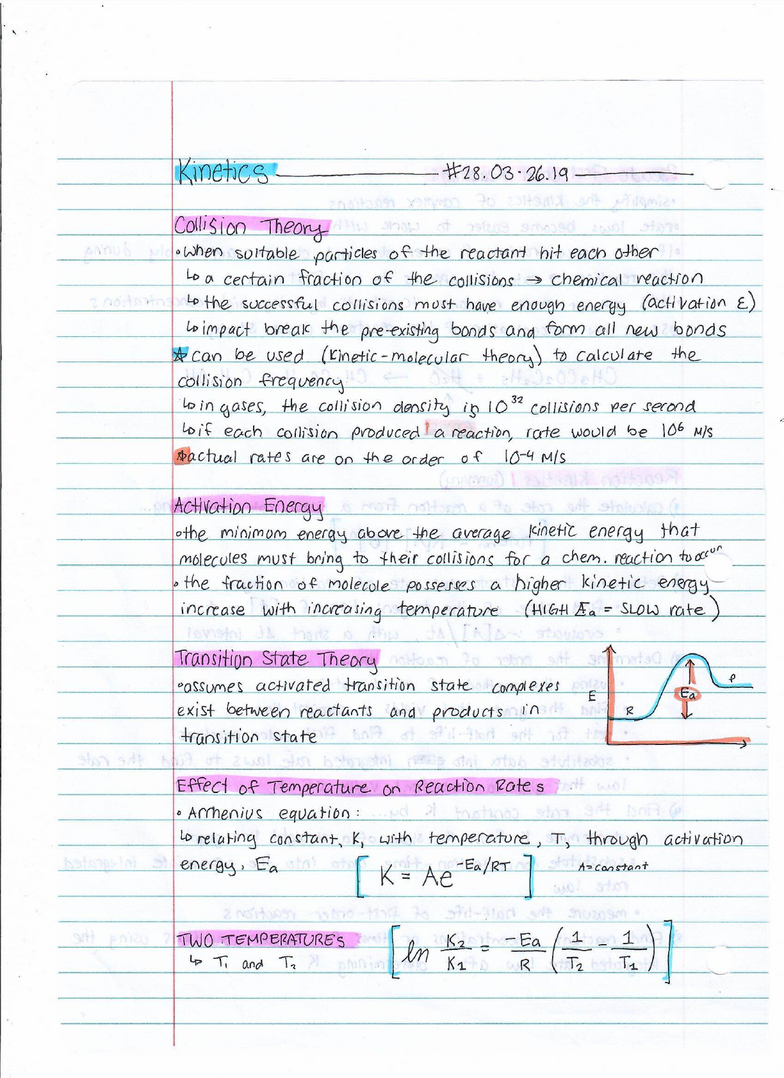 Kinetics #28.03.26.19
Collision Theory
• when suitable particles of the reactant hit each other
↳ a certain fraction of the collisions → chemical reaction
↳ the successful collisions must have enough energy (activation E)
↳ impact break the pre-existing bonds and form all new bonds
☆ can be used (kinetic-molecular theory) to calculate the
collision frequency
↳ in gases, the collision density is 10³² collisions per second
↳ if each collision produced a reaction, rate would be 10⁶ M/s
☆ actual rates are on the order of 10⁻⁴ M/s
Activation Energy
• the minimum energy above the average kinetic energy that
molecules must bring to their collisions for a chem. reaction to occur
• the fraction of molecule possesses a higher kinetic energy
increase with increasing temperature (HIGH Ea = SLOW rate)
Transition State Theory
• assumes activated transition state complexes
exist between reactants and products in
transition state
E
R
Ea
P
Effect of Temperature on Reaction Rates
• Arrhenius equation:
↳ relating constant, K, with temperature, T, through activation
energy, Ea [K = Ae^-Ea/RT] A=constant
TWO TEMPERATURES [ln K₂/K₁ = -Ea/R (1/T₂ - 1/T₁)]
↳ T₁ and T₂